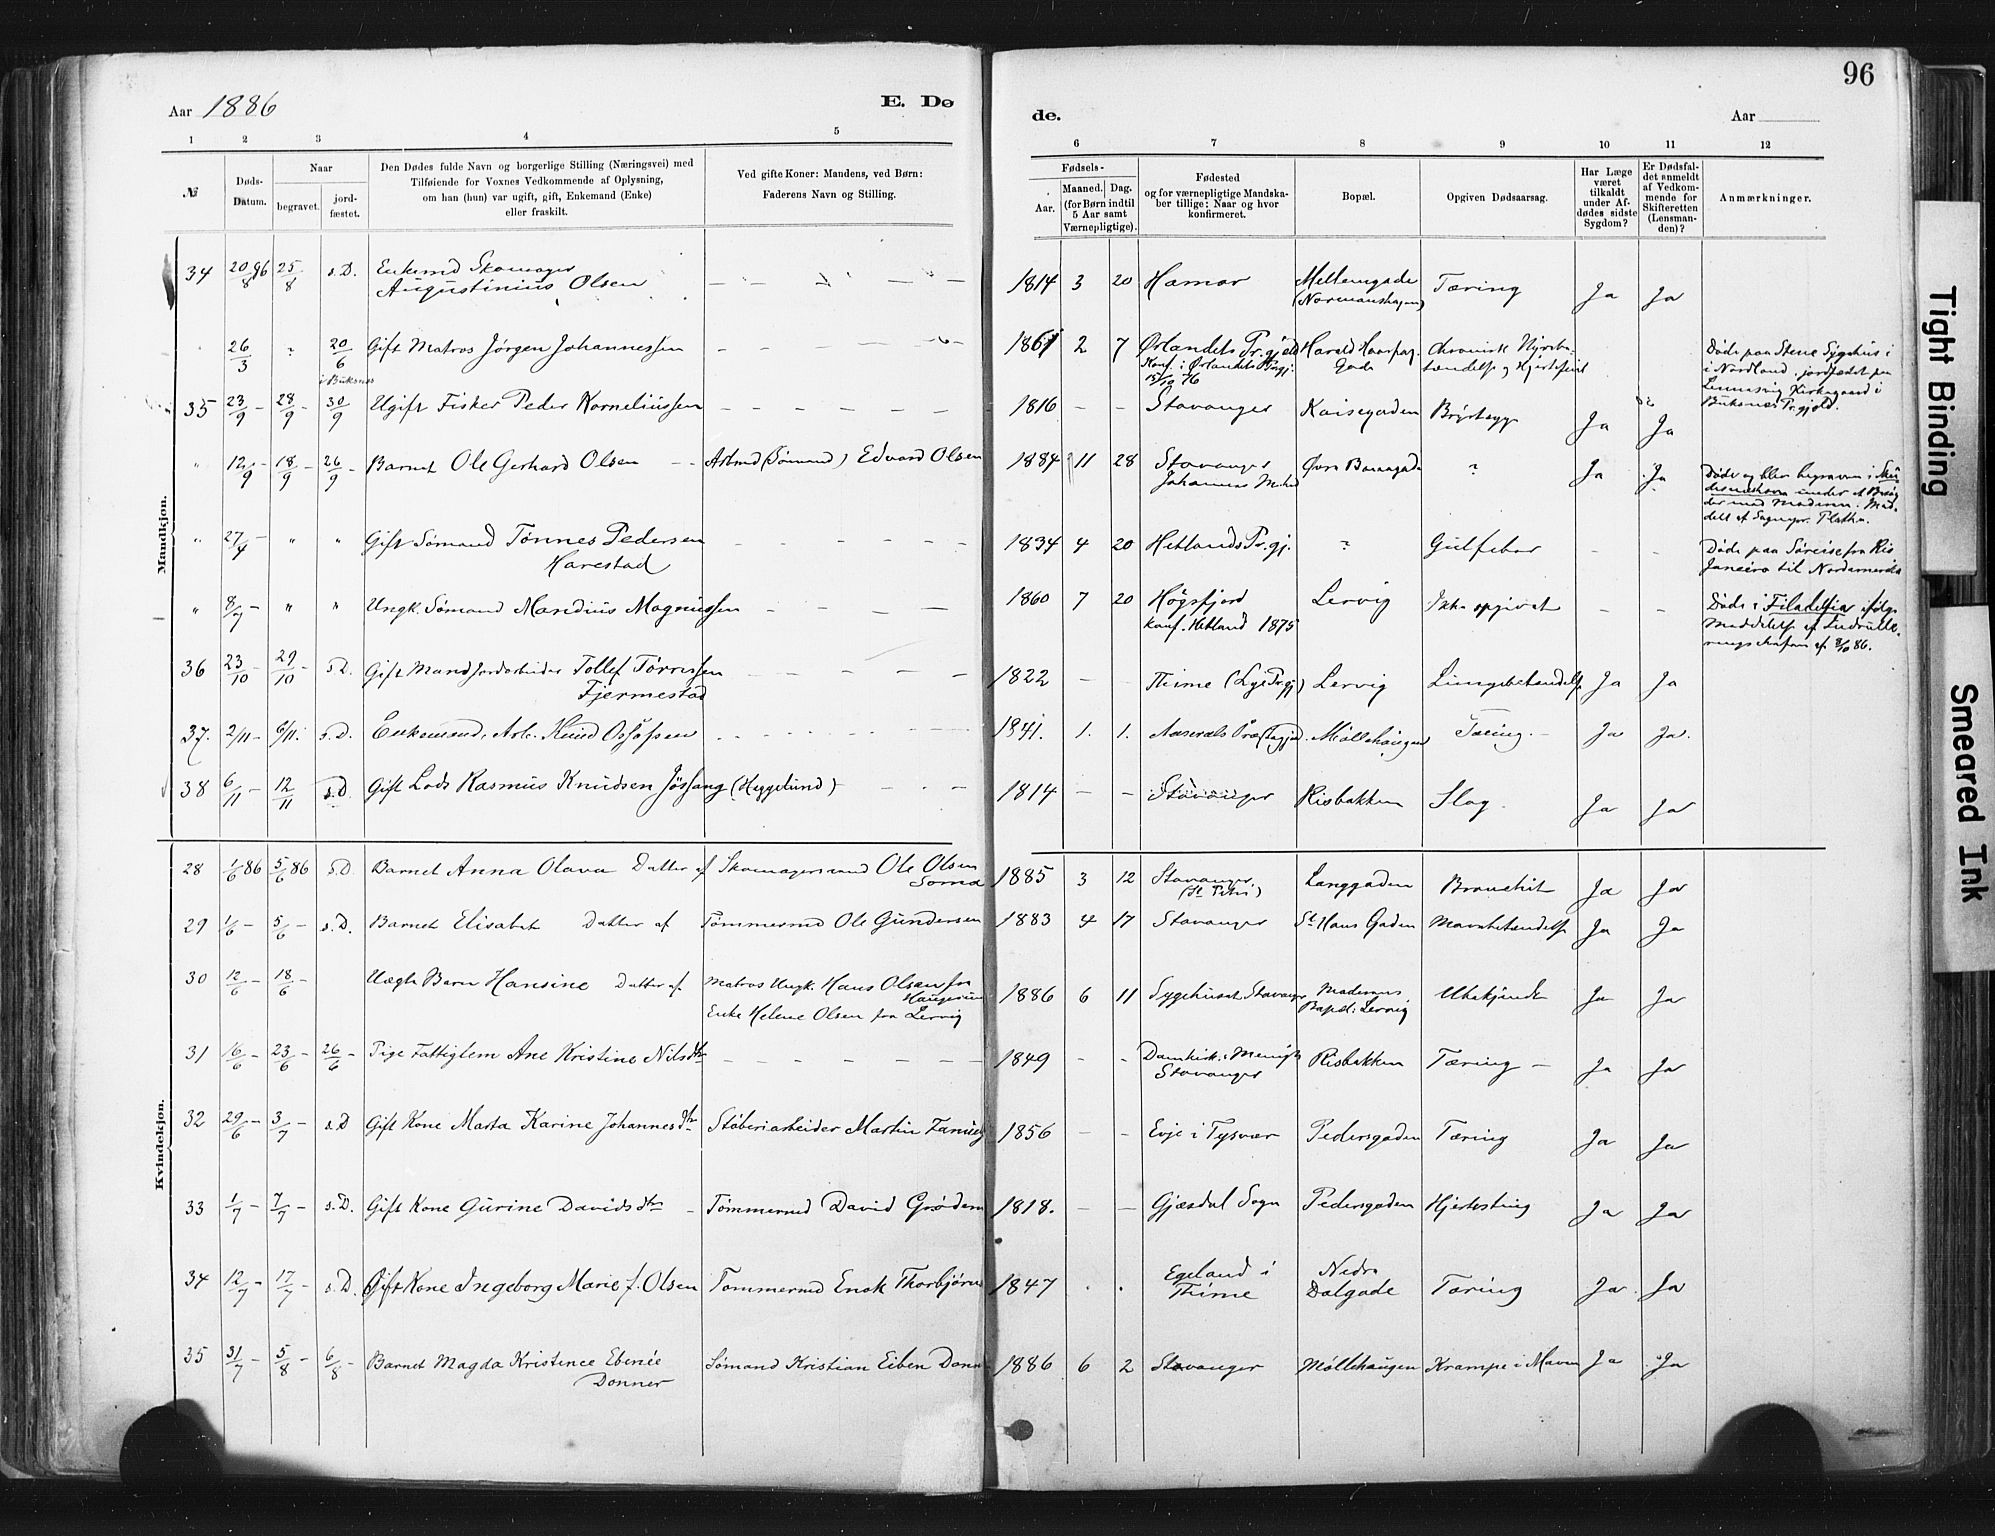 96
Aar 1886
E. Dø
de.
Aar
1 2 3 4 5 6 7 8 9 10 11 12
№
Døds-Datum.
Naar
begravet.
jord-fæstet.
Den Dødes fulde Navn og borgerlige Stilling (Næringsvei) med
Tilføiende for Voxnes Vedkommende af Oplysning,
om han (hun) var ugift, gift, Enkemand (Enke)
eller fraskilt.
Ved gifte Koner: Mandens, ved Børn:
Faderens Navn og Stilling.
Fødsels-
Aar.
Maaned. Dag.
(for Børn indtil
5 Aar samt
Værnepligtige).
Fødested
og for værnepligtige Mandska-
ber tillige: Naar og hvor
konfirmeret.
Bopæl.
Opgiven Dødsaarsag.
Har Læge
været
tilkaldt
under Af-
dødes sidste
Sygdom?
Er Dødsfal-
det anmeldt
af Vedkom-
mende for
Skifteretten
(Lensman-
den)?
Anmærkninger.
Mandkjøn.
34 20/8 86 25/8 s.D. Enkemd Skomager Augustinius Olsen — 1814 3 20 Hamar Mellemgade Tæring Ja Ja
26/3 ? 20/6 i Buksnes Gift Matros Jørgen Johannessen — 2 7 Ørlandets Pr.gjeld Konf. i Ørlandets 15/10 76 Chronisk
Døde paa Stene Sygehus i
i Nordland, jordfæstet paa
Kirkegaard i
Buksnes Pr.gjeld.
35 23/9 – 28/9 30/9 Ugift Fisker Peder Korneliussen — 1816 – – Stavanger Ja Ja
" 12/9 – 18/9 – 26/9 – Barnet Ole Gerhard Olsen – Arbmd (Sømand) Edvard Olsen 1884 11 28 Stavanger Øvre ? Ja Ja
Døde og blev begraven i
under et Besøg
" 27/4 – " " Gift Sømand Tønnes Pedersen Harestad — 1834 4 20 Hetlands Pr.gj. ? Gulfeber – –
Døde paa Søreise fra Rio
Janeiro til Nordamerika
" 8/7 – " " Ungk. Sømand Mandius Magnussen — 1860 7 20 Høgsfjord konf. Hetland 1875 Lervig Ikke opgivet – –
Døde i Filadelfia ifølge
Meddelelse af Indrulle-
rings af 8/10 86.
36 23/10 – 29/10 – s.D. Gift Mand Jordarbeider Tollef Tørressen Fjermestad — 1822 – – Thime (Lye Pr.gj) Lervig Lungebetændelse Ja Ja
37. 2/11 – 6/11. s.D. Enkemand, Arb. Knud — 1841. 1. 1. Aaserals Præstegjeld. Møllehaugen Tæring. – Ja Ja.
38 6/11 – 12/11 s.D. Gift Lods Rasmus Knudsen Jøssang (Heggelund) – 1814 – – Stavanger Risbakken Slag. Ja Ja
Kvindekjøn.
28 1/6 86 5/6 86 s.D. Barnet Anna Olava Datter af Skomagersvend Ole Olsen 1885 3 12 Stavanger (St. Petri) Langgaden Bronchit Ja Ja
29 1/6 – 5/6 – s.D. Barnet Elisabet Datter af Tømmermd Ole Gundersen 1883 4 17 Stavanger St Hans Gaden Mavebetændelse Ja Ja
30 12/6 – 18/6 – Uægte Barn Hansine Datter af Matros Ungk. Hans Olsen fra Haugesund Enke Helene Olsen fra Lervig 1886 6 11 Sygehuset Stavanger Moderens Bopæl: Lervig Ubekjendt Ja Ja
31 16/6 – 23/6 – 26/6 – Pige Fattiglem Ane Kristine Nilsdtr — 1849 – – Domkirk. Menigh Stavanger Risbakken Tæring – Ja Ja
32 29/6 – 3/7 – s.D Gift Kone Marta Karine Johannesdtr Støberiarbeider Martin 1856 – – Evje i Tysvær Pedersgaden Tæring Ja Ja
33 1/7 – 7/7 – s.D. Gift Kone Gurine Davidsdtr – Tømmermd David Grødem 1818. – – Gjæsdal Sogn Pedersgaden Hjertesting Ja Ja
34 12/7 – 17/7 – s.D. Gift Kone Ingeborg Marie f. Olsen Tømmermd Enok Thorbjørns 1847 . . Egeland i Thime Nedre Dalgade Tæring Ja. Ja
35 31/7 – 5/8 – 6/8 – Barnet Magda Kristence Ebenée Donner Sømand Kristian Eiben Donn 1886 6 2 Stavanger Møllehaugen Krampe i Maven Ja Ja
Tight Binding
Smeared Ink